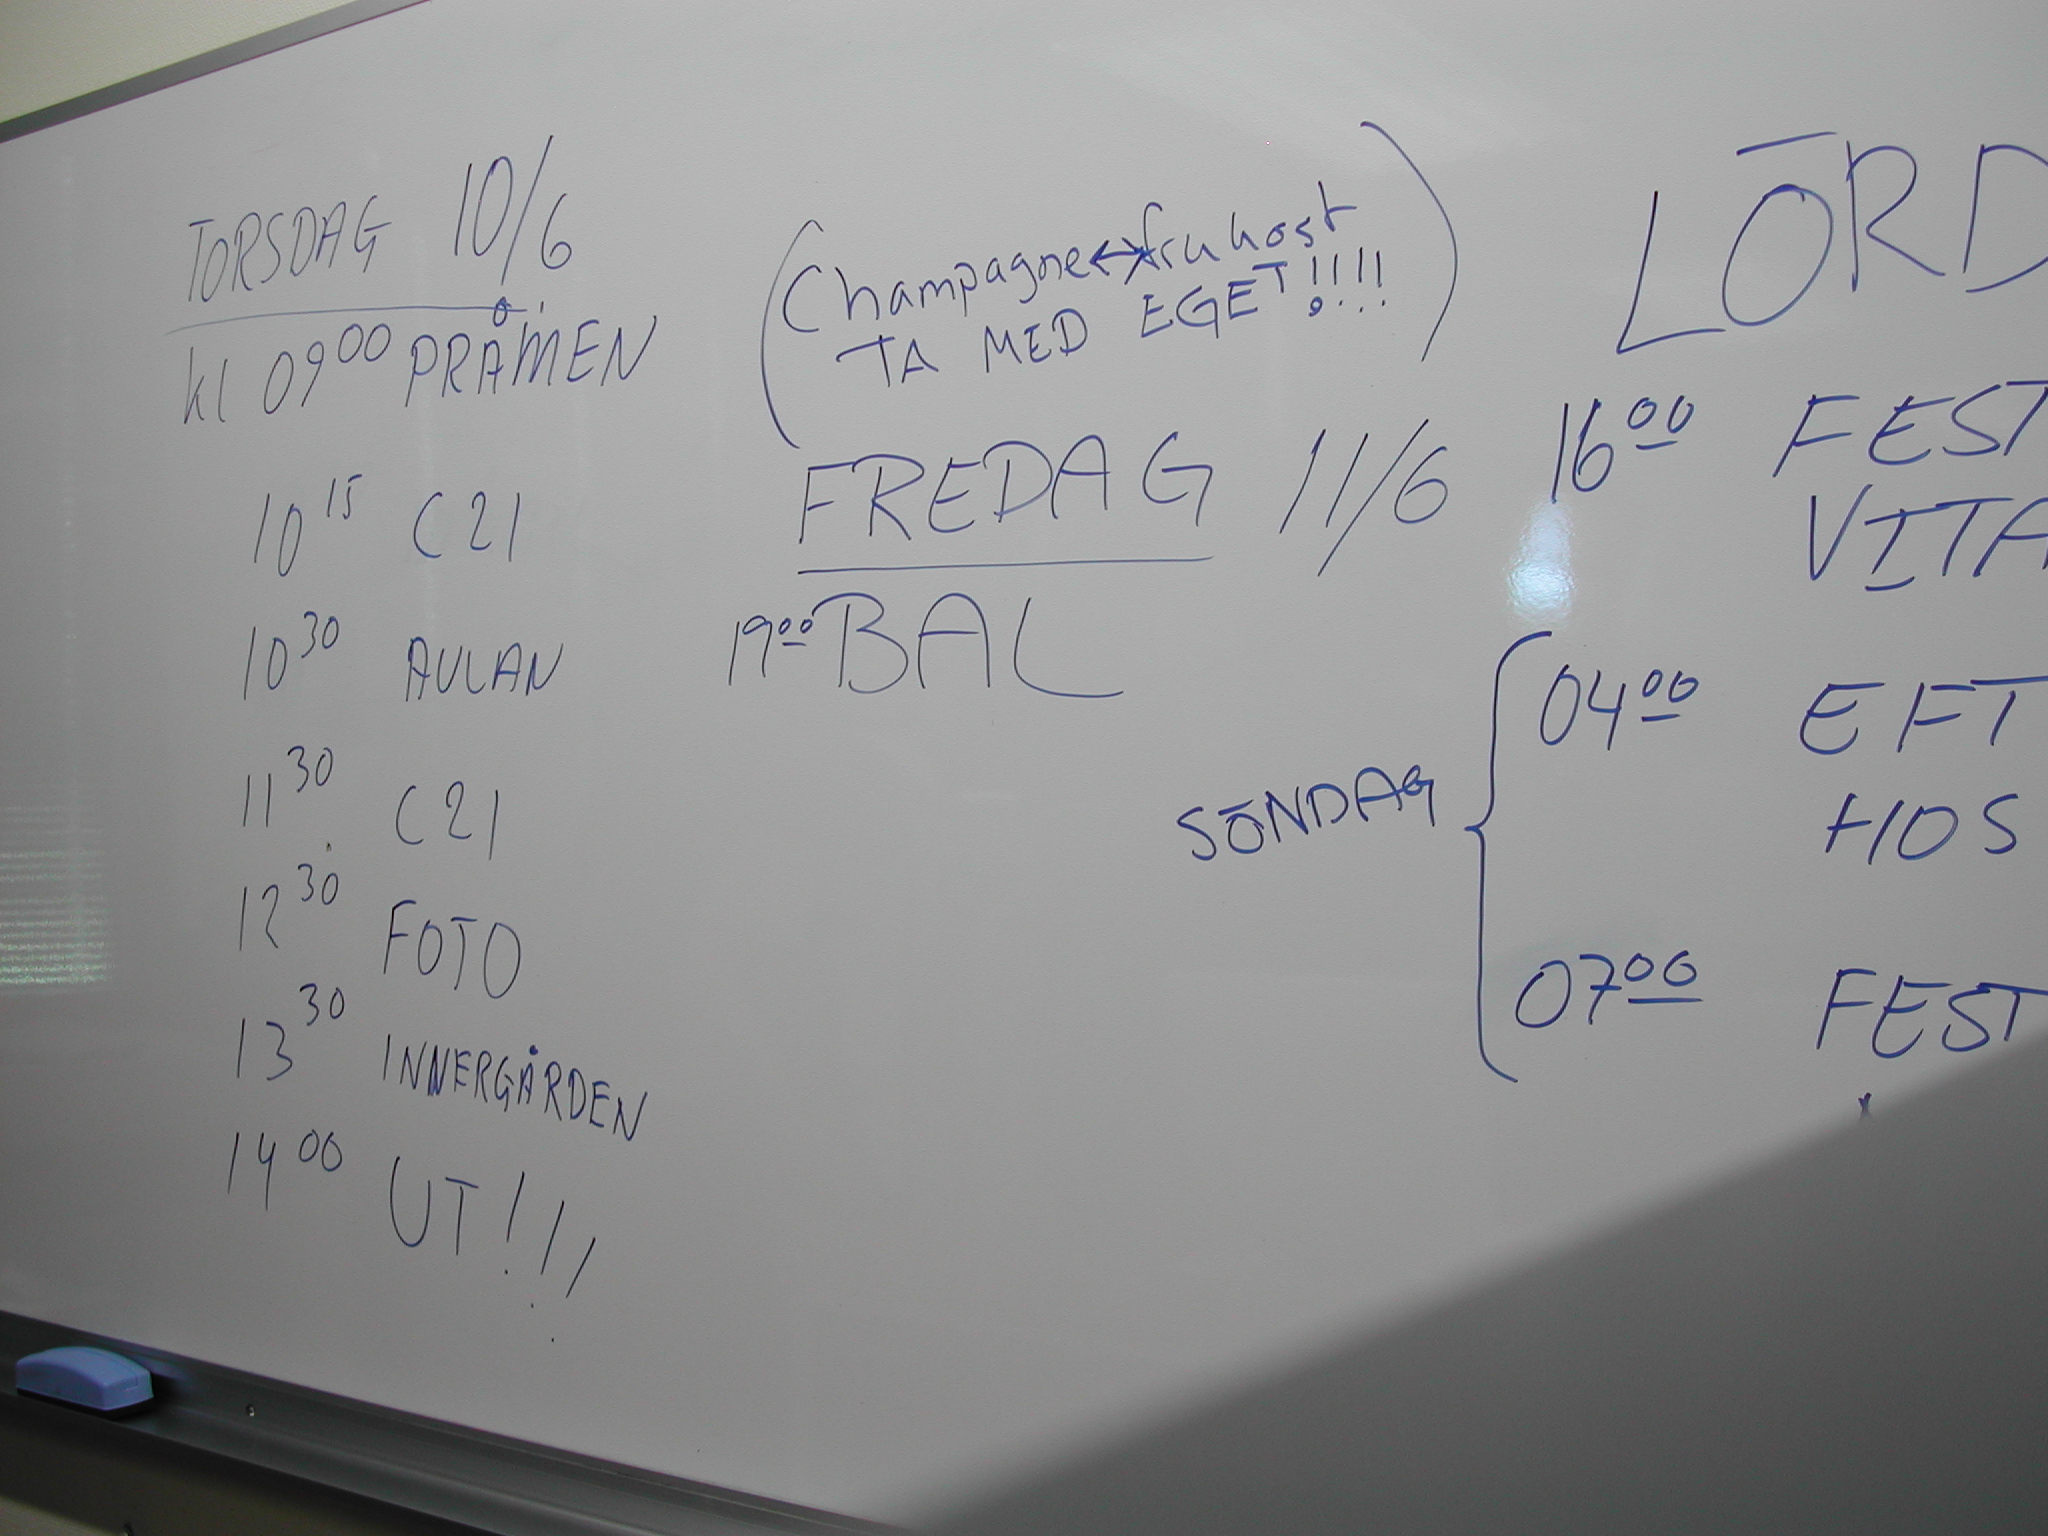 TORSDAG 10/6
kl 09 00 PRÅMEN
10 15 C21
10 30 AULAN
11 30 C21
12 30 FOTO
13 30 INNERGÅRDEN
14 00 UT!!!
(Champagne↔frukost
TA MED EGET!!!!)
FREDAG 11/6
19 00 BAL
LÖRD
16 00 FEST
VITA
SÖNDAG {
04 00 EFT
HOS
07 00 FEST